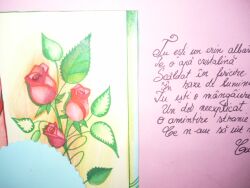 Tu est un crin alba
ve o apă cristalină
Scăldat în fericire
În raze de lumină
Tu ești o mângâiere
Un dor neexplicat
O amintire
Ce n-am să uit